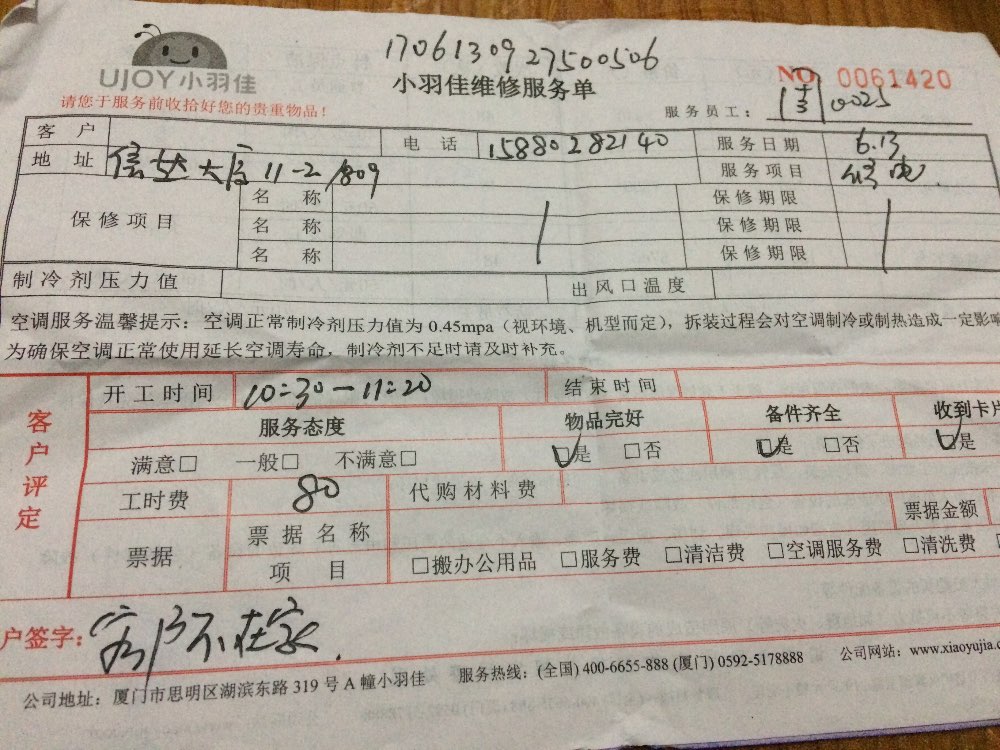 UJOY小羽佳
1706130927500506
小羽佳维修服务单
NO 0061420
请您于服务前收拾好您的贵重物品!
服务员工: 0025
客户 电话 15880282140 服务日期 6.13
地址 信达大厦 11-2/809 服务项目 修电
保修项目 名称 保修期限
名称 保修期限
名称 保修期限
制冷剂压力值 出风口温度
空调服务温馨提示:空调正常制冷剂压力值为 0.45mpa(视环境、机型而定),拆装过程会对空调制冷或制热造成一定影响
为确保空调正常使用延长空调寿命,制冷剂不足时请及时补充。
客户评定
开工时间 10:30-11:20 结束时间
服务态度 物品完好 备件齐全 收到卡片
满意□ 一般□ 不满意□ □是 □否 □是 □否 □是
工时费 80 代购材料费
票据 票据名称 票据金额
项目 □搬办公用品 □服务费 □清洁费 □空调服务费 □清洗费
户签字: 客户不在家.
公司地址:厦门市思明区湖滨东路 319 号 A 幢小羽佳 服务热线:(全国) 400-6655-888 (厦门) 0592-5178888 公司网站:www.xiaoyujia.c